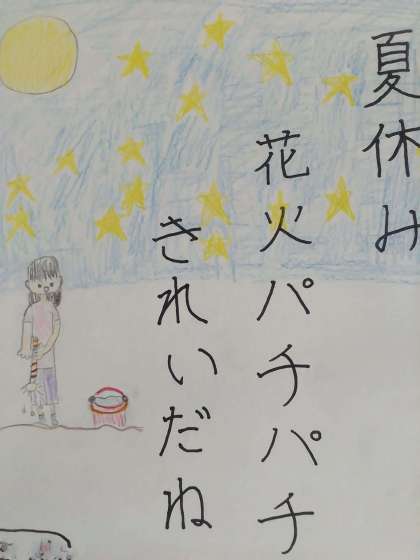 夏休み
花火パチパチ
きれいだね